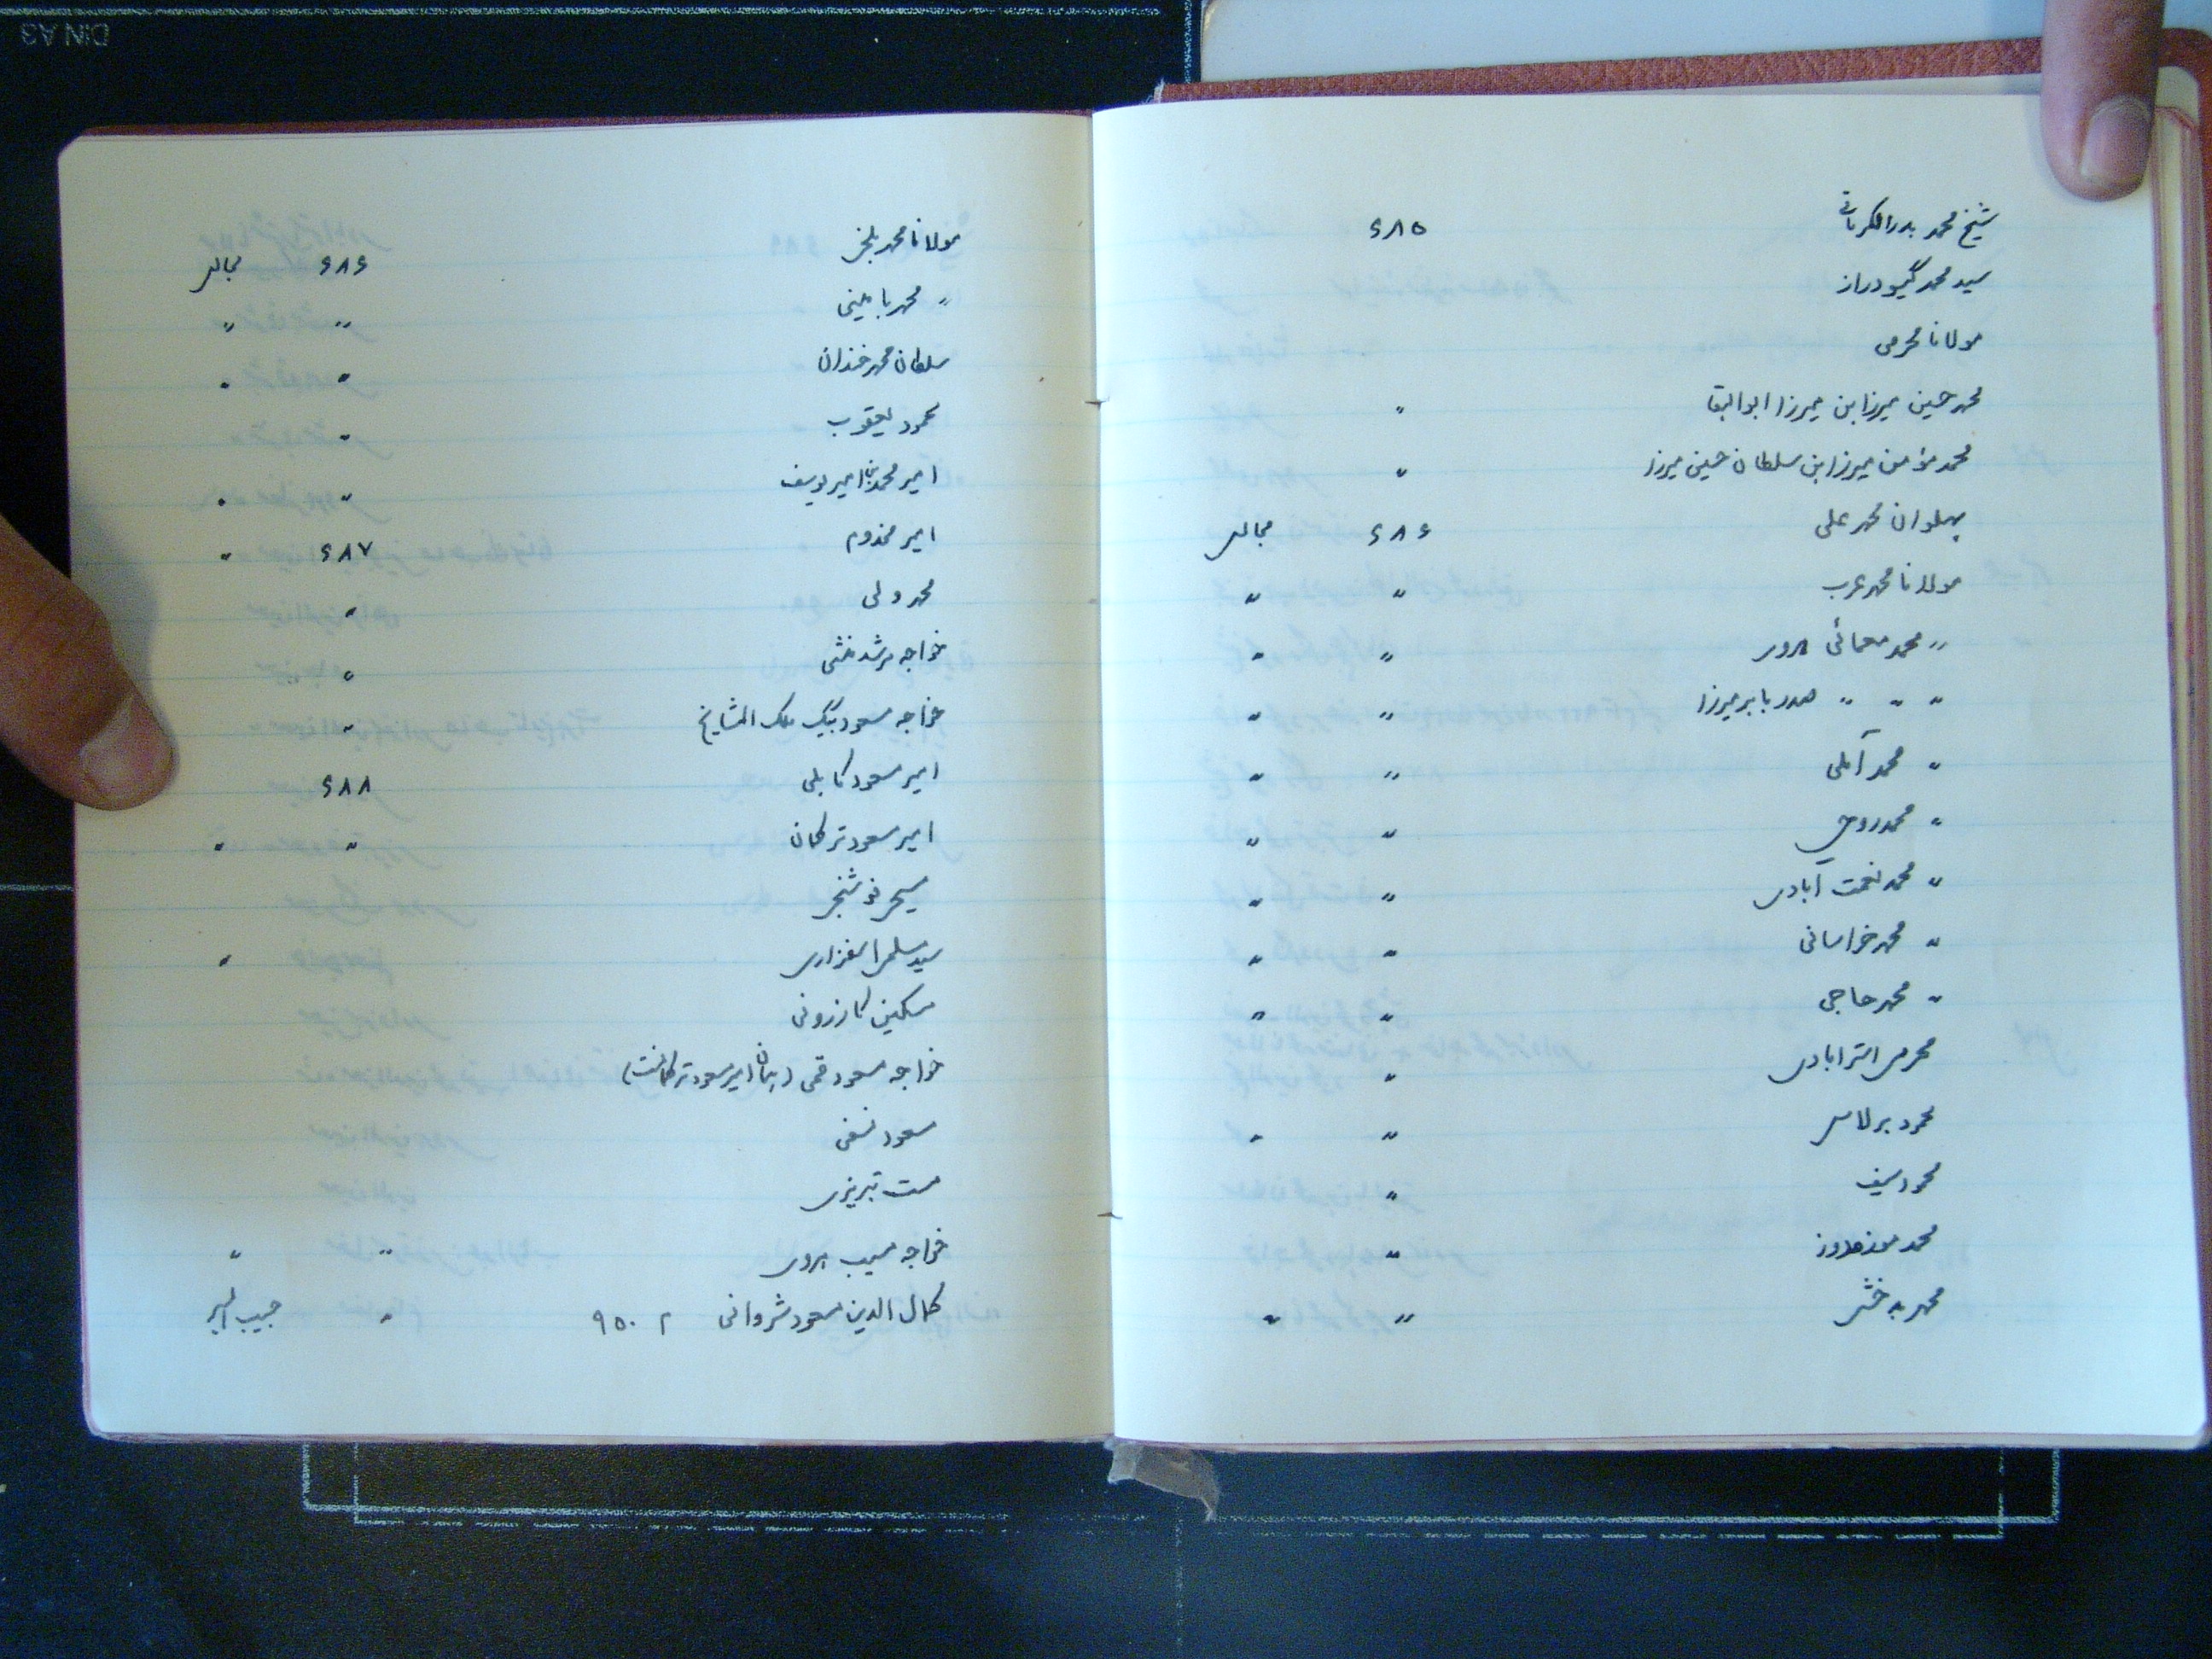 شیخ محمد بدرالکرمانی ۶۸۵
سید محمد گیسودراز
مولانا محرمی
محمد حسین میرزا بن میرزا ابوالبقا "
محمد مؤمن میرزا بن سلطان حسین میرزا "
پهلوان محمد علی ۶۸۶ مجالس
مولانا محمد عرب " "
" محمد معمائی هروی " "
" " " صدر بابر میرزا " "
" محمد آملی " "
" محمد روجی " "
" محمد نعمت آبادی " "
" محمد خراسانی " "
" محمد حاجی " "
محرمی استرابادی "
محمود برلاس " "
محمود سیف "
محمد "
محمد بدخشی " "
مولانا محمد بلخی ۶۸۶ مجالس
" محمد بامینی " "
سلطان محمد خندان " "
محمود یعقوب "
امیر محمد بن امیر یوسف " "
امیر مخدوم ۶۸۷ "
محمد ولی "
خواجه مرشد منشی "
خواجه مسعود بیگ ملک المشایخ "
امیر مسعود کابلی ۶۸۸
امیر مسعود ترکمان " "
مسیحی فوشنجی
سید سلمی "
مسکین کازرونی
خواجه مسعود قمی (همان امیر مسعود ترکمانست)
مسعود نسفی
مست تبریزی
خواجه مسیب هروی " "
کمال الدین مسعود شروانی م ۹۵۰ " حبیب السیر
DIN A3